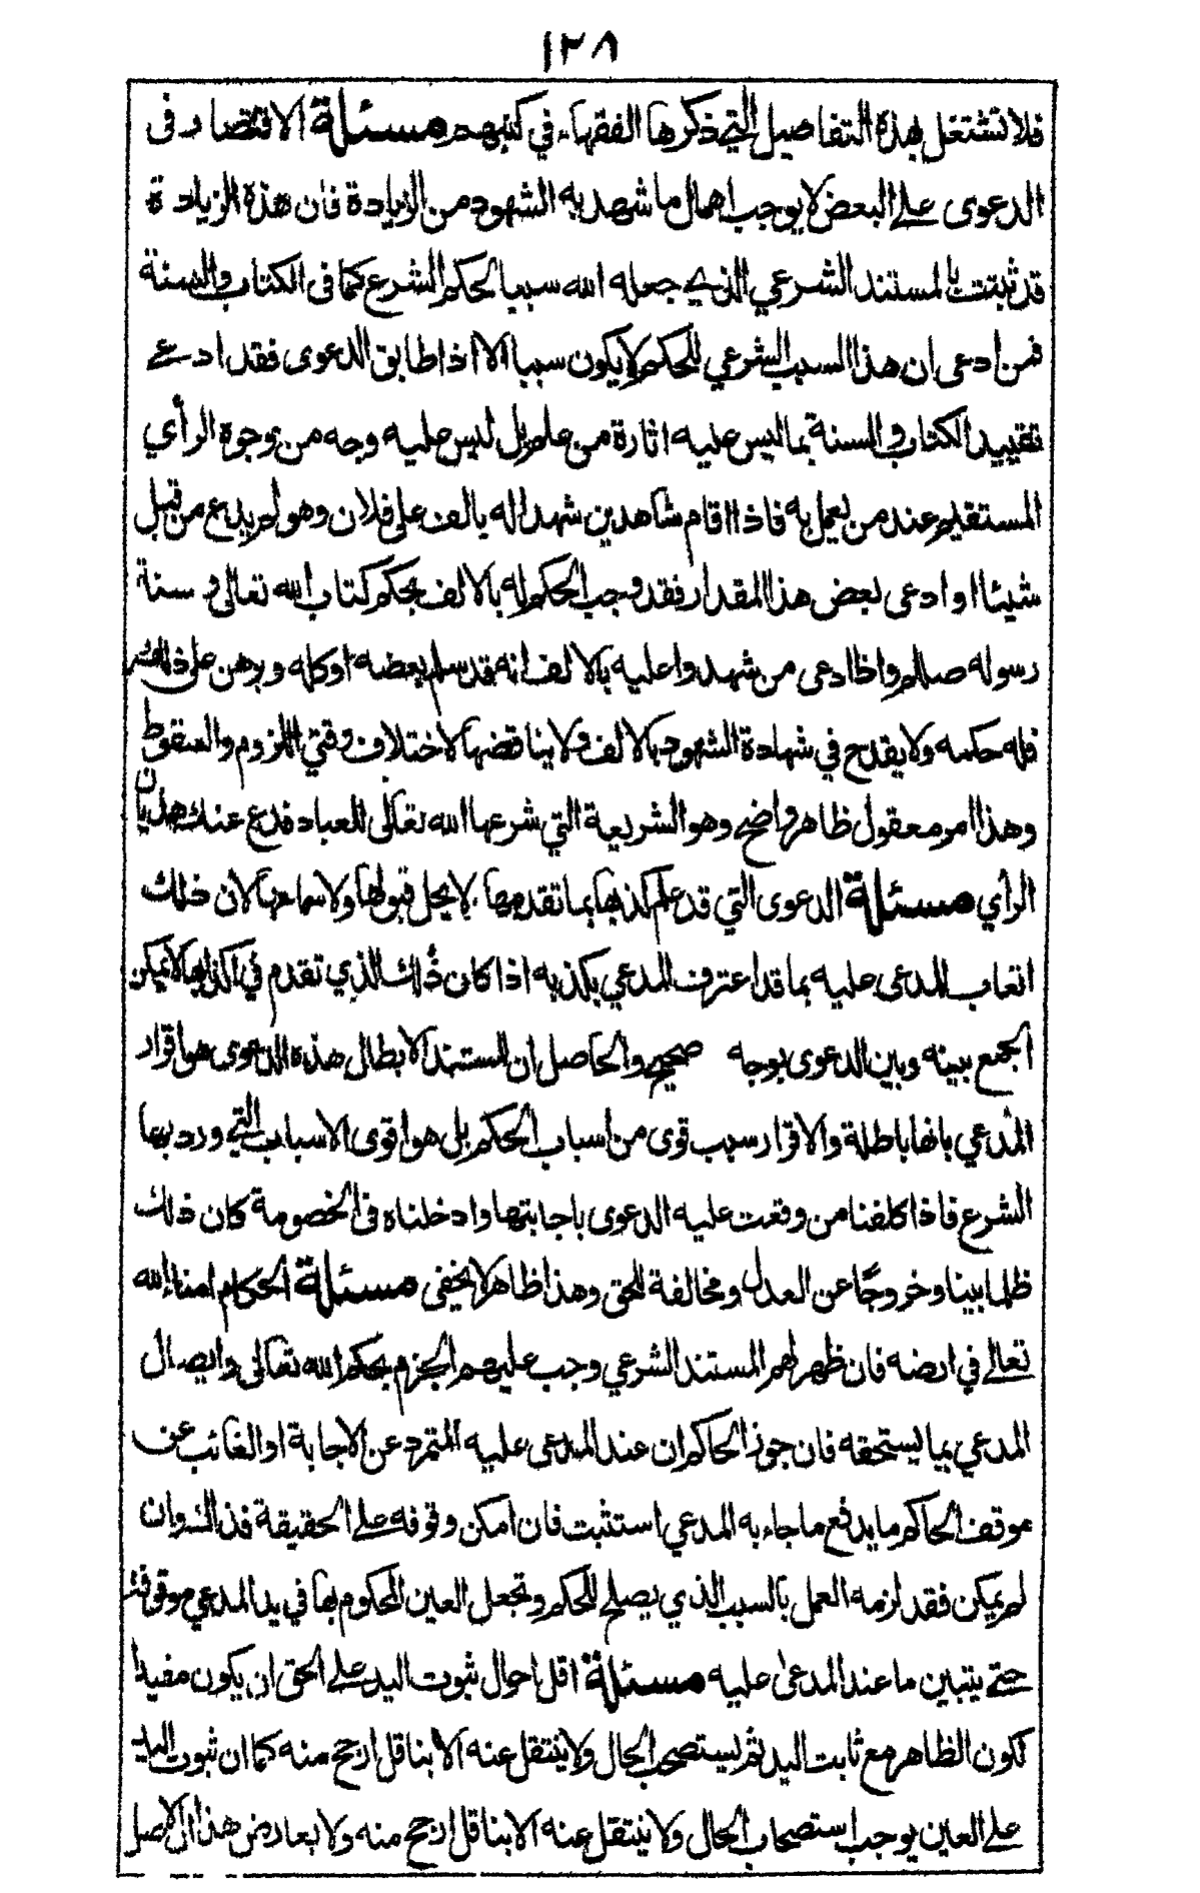 ١٣٨
فلا نشتغل بهذه التفاصيل التي ذكرها الفقهاء في كتبهم مسئلة الاقتصار في
الدعوى على البعض لا يوجب اهمال ما شهد به الشهود من الزيادة فان هذه الزيادة
قد ثبتت بالمستند الشرعي الذي جعله الله سببا لحكم الشرع كما في الكتاب والسنة
فمن ادعى ان هذا السبب الشرعي للحكم لا يكون سببا الا اذا طابق الدعوى فقد ادعى
تقييد الكتاب والسنة بما ليس عليه اثارة من علم بل ليس عليه وجه من وجوه الرأي
المستقيم عند من يعمل به فاذا اقام شاهدين شهدا له بالف على فلان وهو لم يدع من قبل
شيئا او ادعى بعض هذا المقدار فقد وجب الحكم له بالالف بحكم كتاب الله تعالى و سنة
رسوله صللم واذا ادعى من شهدوا عليه بالالف انه قد سلم بعضه او كله وبرهن على ذلك
فله حكمه ولا يقدح في شهادة الشهود بالالف ولا يناقضها لاختلاف وقتي اللزوم والسقوط
وهذا امر معقول ظاهر واضح وهو الشريعة التي شرعها الله تعالى للعباد فدع عنك هذيان
الرأي مسئلة الدعوى التي قد علم كذبها بما تقدمها لا يحل قبولها ولا سماعها لان ذلك
اتعاب للمدعى عليه بما قد اعترف المدعي بكذبه اذا كان ذلك الذي تقدم في اكذابها لا يمكن
الجمع بينه وبين الدعوى بوجه صحيح والحاصل ان المستند لابطال هذه الدعوى هو اقرار
المدعي بانها باطلة والاقرار سبب قوى من اسباب الحكم بل هو اقوى الاسباب التي ورد بها
الشرع فاذا كلفنا من وقعت عليه الدعوى باجابتها وادخلناه في الخصومة كان ذلك
ظلما بينا وخروجًا عن العدل ومخالفة للحق وهذا ظاهر لا يخفى مسئلة الحكام امناء الله
تعالى في ارضه فان ظهر لهم المستند الشرعي وجب عليهم الجزم بحكم الله تعالى وايصال
المدعي بما يستحقه فان جوز الحاكم ان عند المدعى عليه المتمرد عن الاجابة او الغائب عن
موقف الحاكم ما يدفع ما جاء به المدعي استثبت فان امكن وقوفه على الحقيقة فذاك وان
لم يمكن فقد لزمه العمل بالسبب الذي يصلح للحكم وتجعل العين المحكوم بها في يد المدعي موقوفة
حتى يتبين ما عند المدعى عليه مسئلة اقل احوال ثبوت اليد على الحق ان يكون مفيدا
لكون الظاهر مع ثابت اليد ثم يستصحب الحال ولا ينتقل عنه الا بناقل ارجح منه كما ان ثبوت اليد
على العين يوجب استصحاب الحال ولا ينتقل عنه الا بناقل ارجح منه ولا يعارض هذا ان الاصل